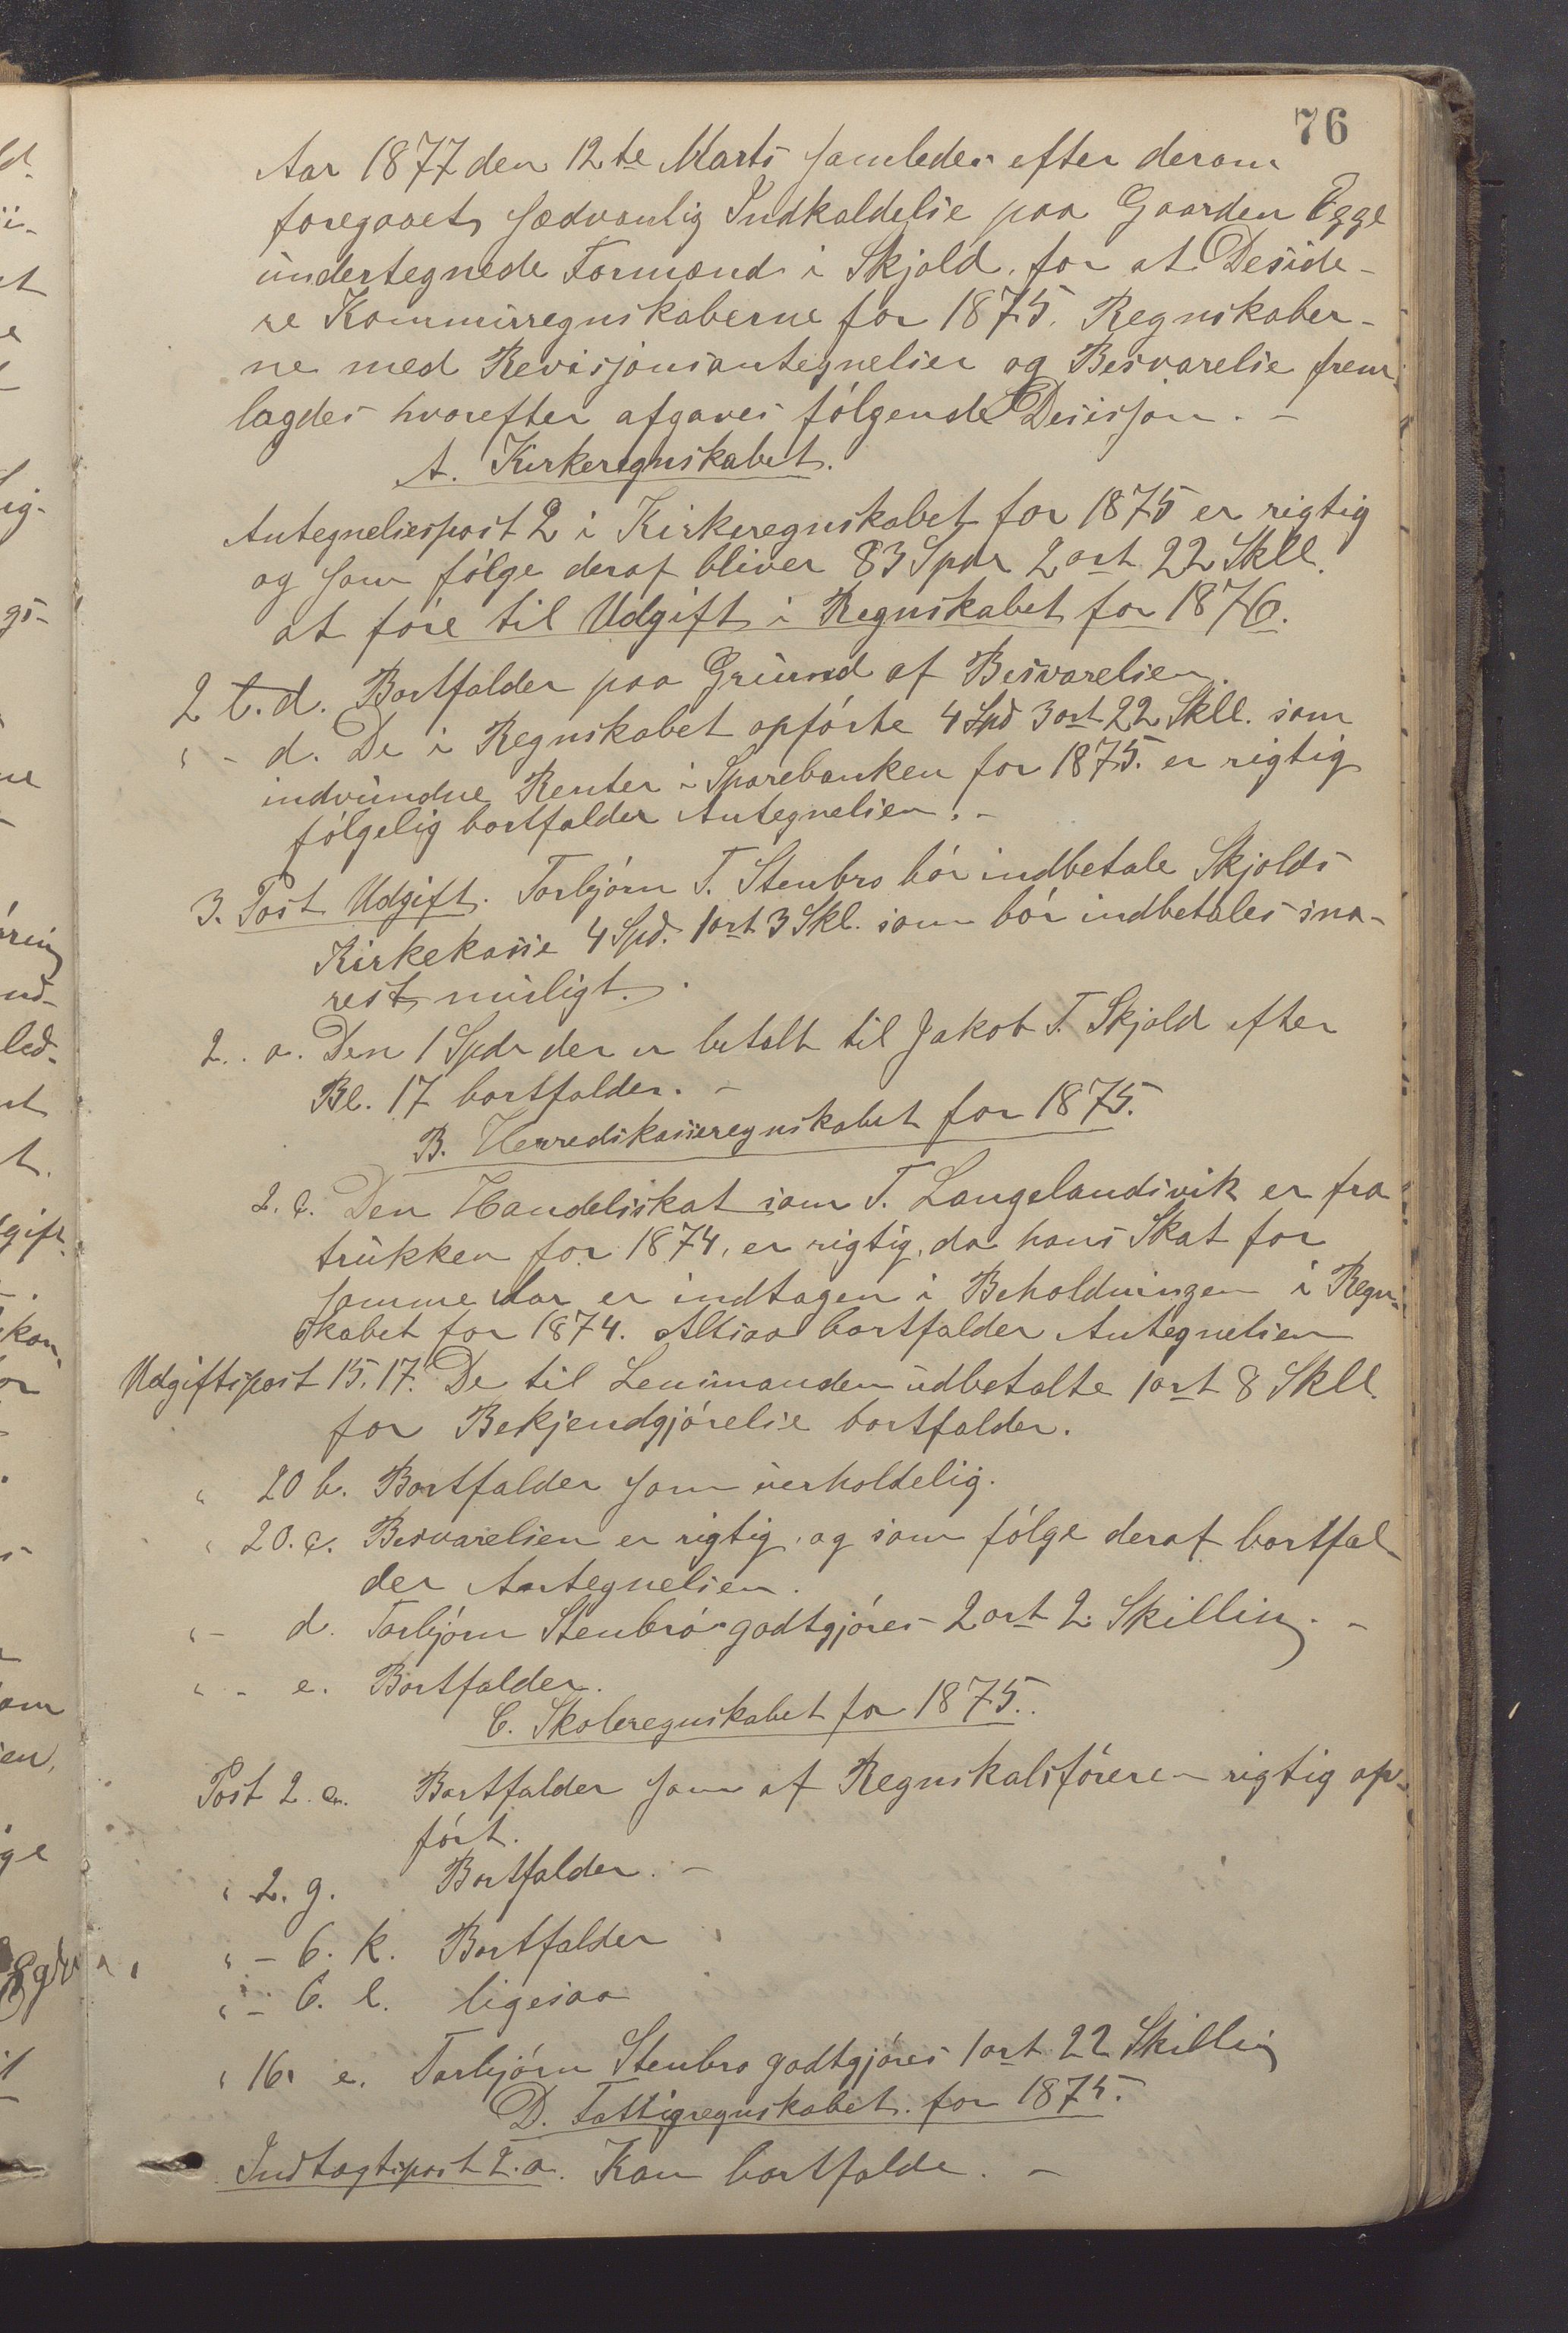 76
Aar 1877 den 12te Marts samledes efter derom
foregaaet sædvanlig Indkaldelse paa Gaarden Egge
undertegnede Formænd i Skjold, for at Deside-
re Kommunregnskaberne for 1875. Regnskaber-
ne med Revisjonsantegnelser og Besvarelse frem-
lagdes hvorefter afgaves følgende Desisjon. -
A. Kirkeregnskabet.
Antegnelsespost 2 i Kirkeregnskabet for 1875 er rigtig
og som følge deraf bliver 83 Spdr 2 ort 22 Skll.
at føre til Udgift i Regnskabet for 1876.
2 t. d. Bortfalder paa Grund af Besvarelsen.
" - d. De i Regnskabet opførte 4 Spd 3 ort 22 Skll. som
indvundne Renter i Sparebanken for 1875. er rigtig
følgelig bortfalder Antegnelsen. -
3. Post Udgift. Torbjørn T. Stenbro bør indbetale Skjolds
Kirkekasse 4 Spd. 1 ort 3 Skl. som bør indbetales sna-
rest muligt.
2.. a. Den 1 Spdr der er betalt til Jakob T. Skjold efter
Bl. 17 bortfalder. -
B. Herredskasseregnskabet for 1875.
2. c. Den Handelsskat som T. Langelandsvik er fra
trukken for 1874, er rigtig, da hans Skat for
samme Aar er indtagen i Beholdningen i Regn-
skabet for 1874. Altsaa bortfalder Antegnelsen
Udgiftspost 15. 17. De til Lensmanden udbetalte 1 ort 8 Skll.
for Bekjendgjørelse bortfalder.
" 20 b. Bortfalder som uerholdelig.
" 20. c. Besvarelsen er rigtig, og som følge deraf bortfal-
der Antegnelsen.
" - d. Torbjørn Stenbro godtgjøres 2 ort 2 Skilling. -
" - e. Bortfalder.
C. Skoleregnskabet for 1875..
Post 2. a. Bortfalder som af Regnskalsføreren rigtig op-
ført.
" 2. g. Bortfalder. -
" - 6. k. Bortfalder
" - 6. l. ligesaa
" 16. e. Torbjørn Stenbro godtgjøres 1 ort 22 Skilling
D. Fattigregnskabet. for 1875.
Indtægtspost 2. a. Kan bortfalde. -